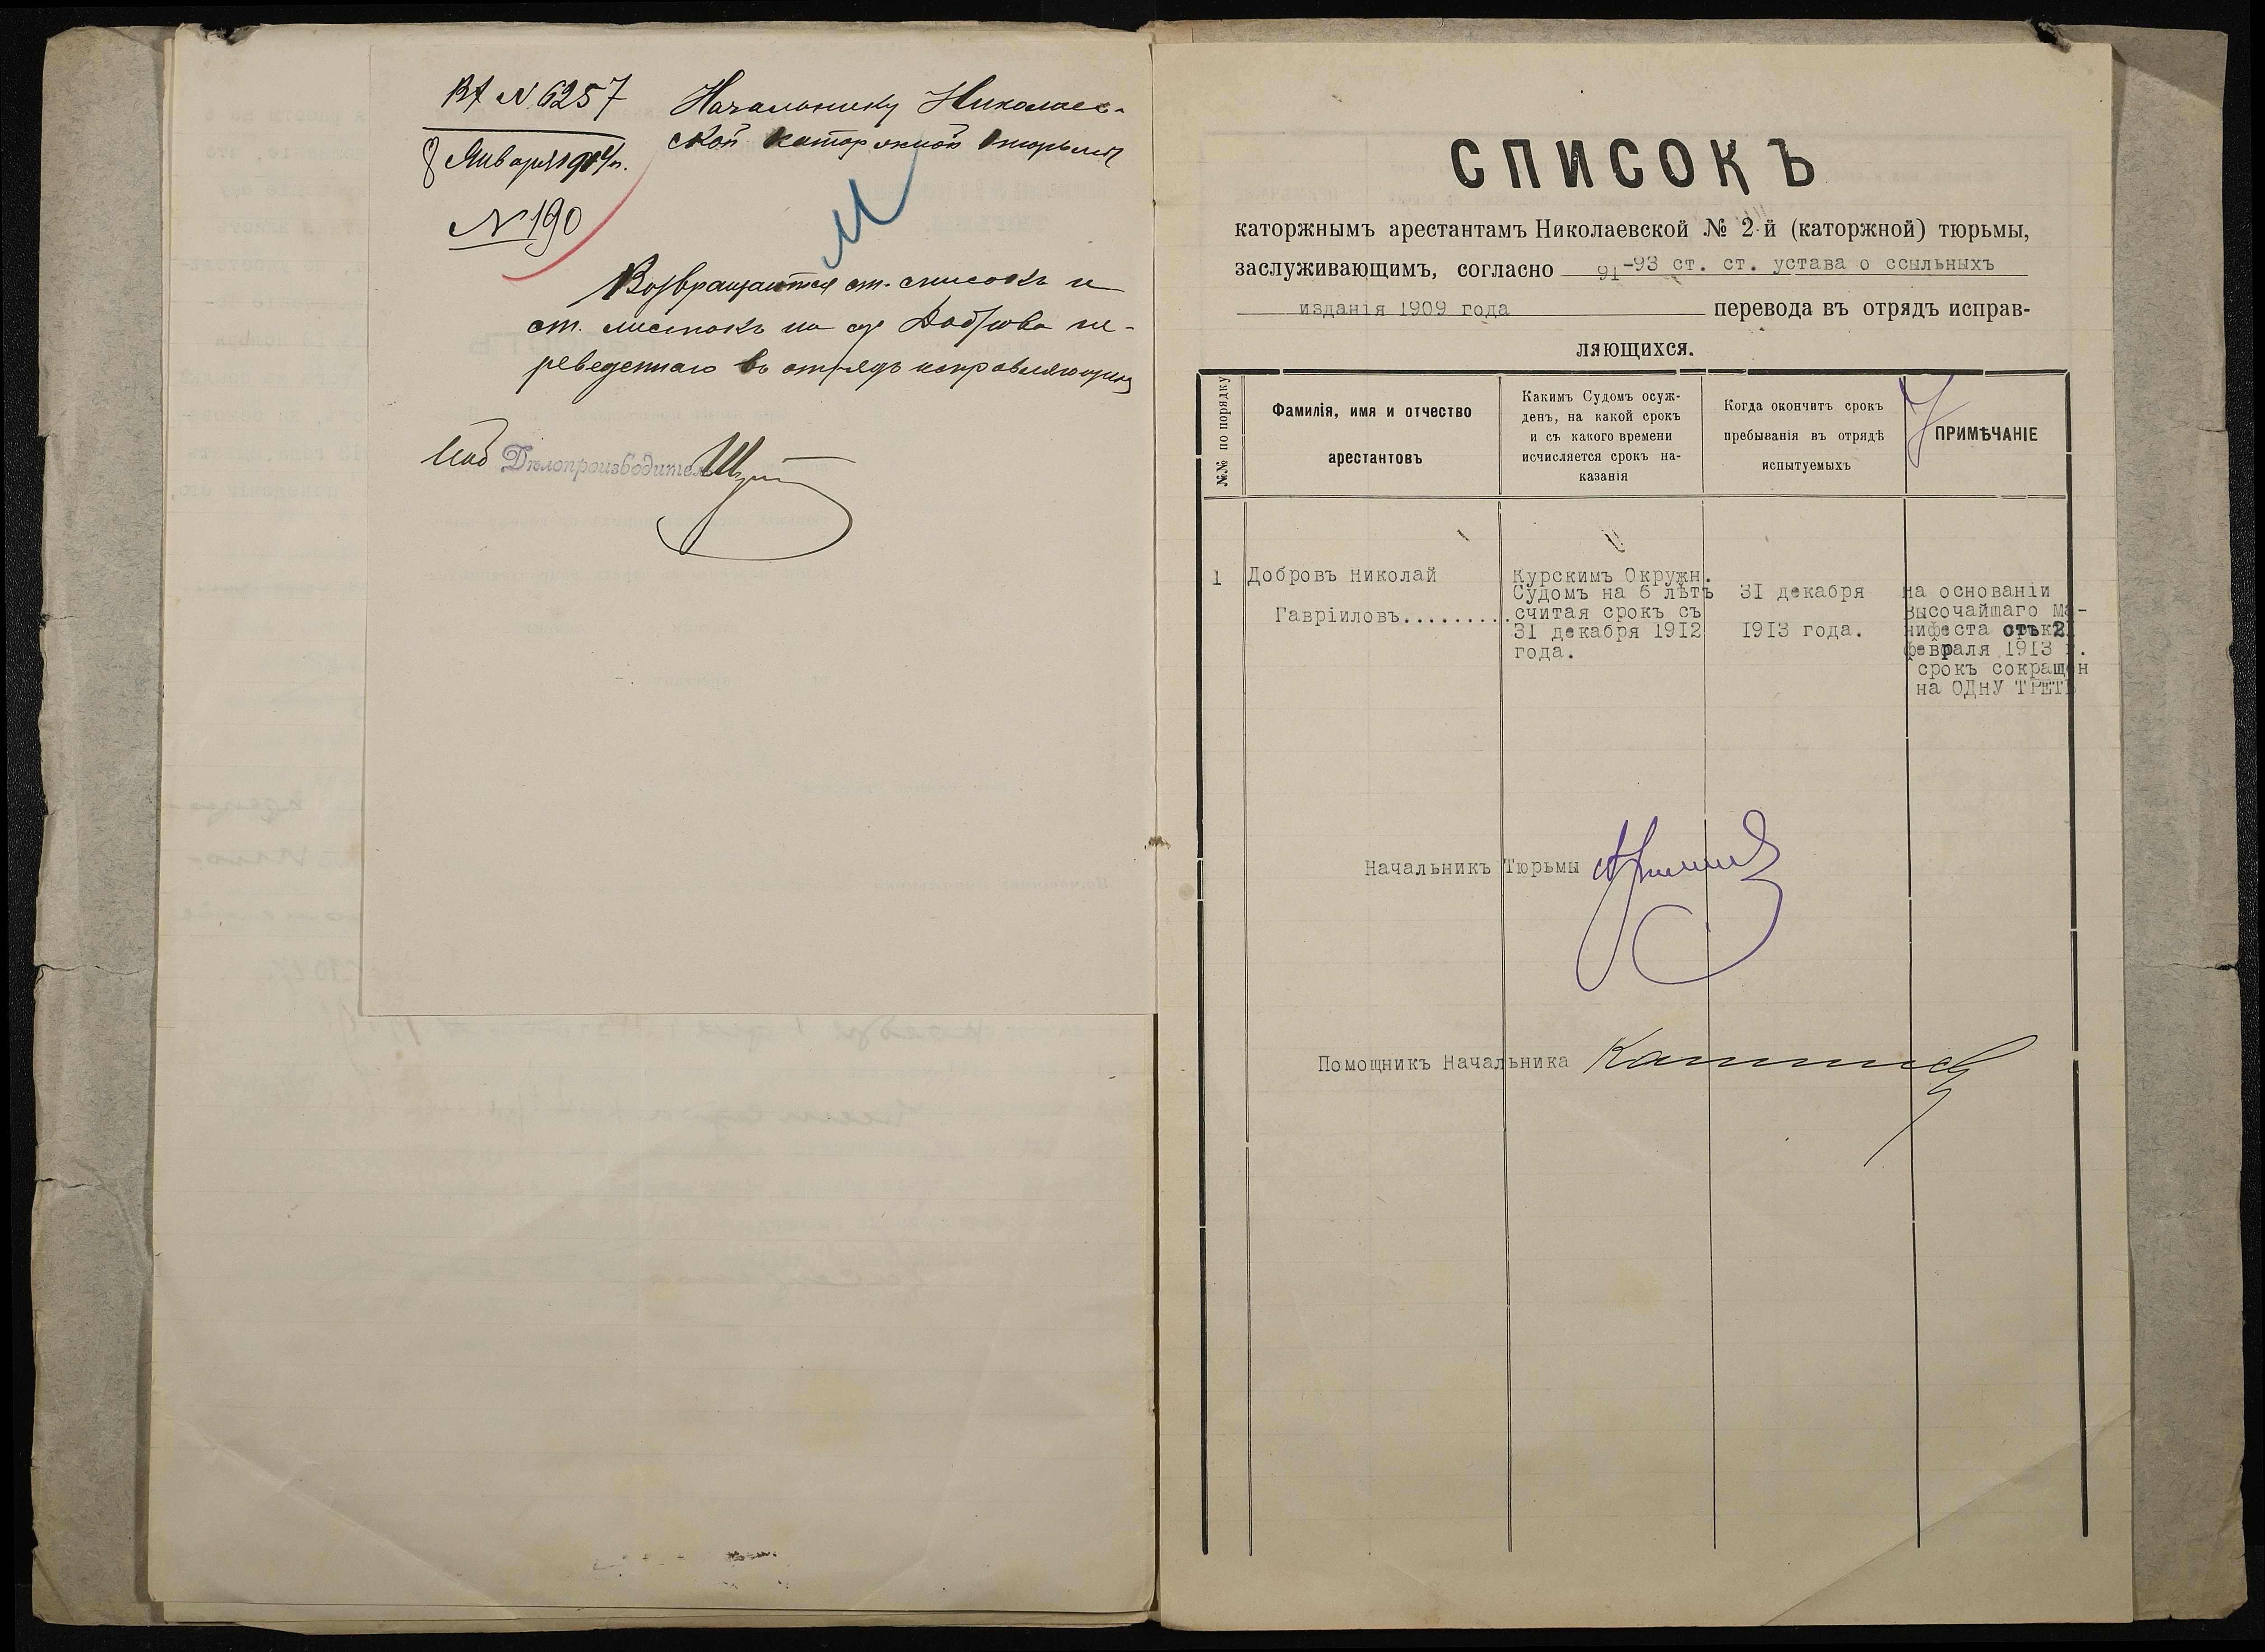 Вх N 6257
8 Января 1914 г.
N 190
Начальнику Николаев-
ской каторжной тюрьмы
Возвращается ст. списокъ и
ст. листокъ на с/к Доброва пе-
реведеннаго въ отрядъ исправляющихся
Дѣлопроизводитель
СПИСОКЪ
каторжнымъ арестантамъ Николаевской № 2-й (каторжной) тюрьмы,
заслуживающимъ, согласно 91-93 ст. ст. устава о ссыльныхъ
изданія 1909 года перевода въ отрядъ исправ-
ляющихся.
№№ по порядку
Фамилія, имя и отчество
арестантовъ
Какимъ Судомъ осуж-
денъ, на какой срокъ
и съ какого времени
исчисляется срокъ на-
казанія
Когда окончитъ срокъ
пребыванія въ отрядѣ
испытуемыхъ
ПРИМѢЧАНІЕ
1
Добровъ Николай
Гавріиловъ.........
Курскимъ Окружн.
Судомъ на 6 лѣтъ
считая срокъ съ
31 декабря 1912
года.
31 декабря
1913 года.
на основаніи
Высочайшаго Ма-
нифеста 21
февраля 1913 г.
срокъ сокращен
на ОДНУ ТРЕТЬ
Начальникъ Тюрьмы
Помощникъ Начальника